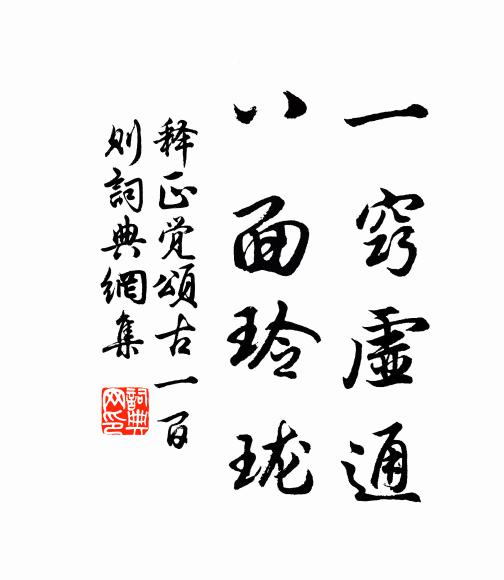 一窍虚通
八面玲珑
释正觉颂古一百
则詞典網集
詞典
网印